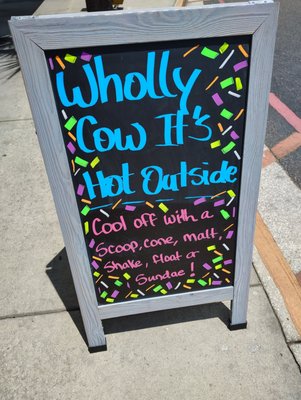 Wholly
Cow It's
Hot Outside
Cool off with a
Scoop, cone, malt,
Shake, float or
Sundae!